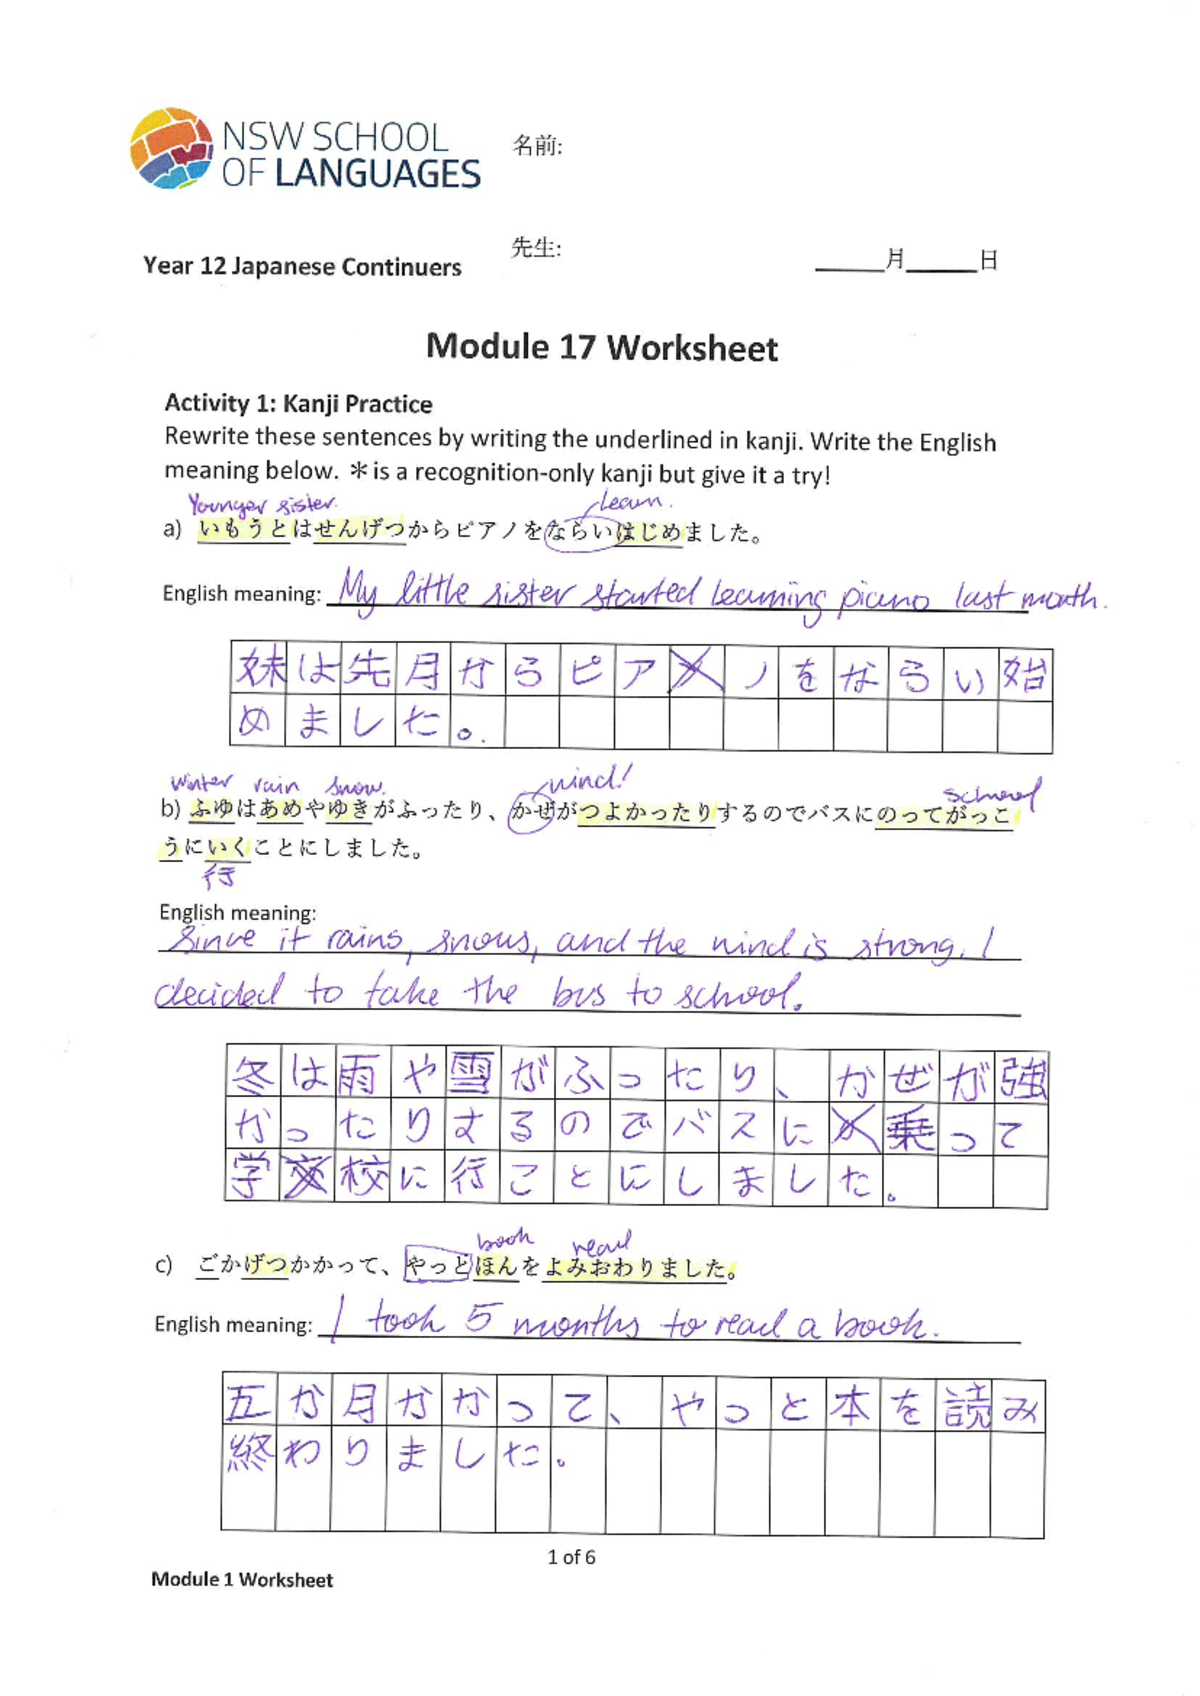 NSW SCHOOL
OF LANGUAGES
名前:
先生:
Year 12 Japanese Continuers
____月____日
Module 17 Worksheet
Activity 1: Kanji Practice
Rewrite these sentences by writing the underlined in kanji. Write the English
meaning below. ＊is a recognition-only kanji but give it a try!
Younger sister. learn.
a) いもうとはせんげつからピアノをならいはじめました。
English meaning: My little sister started learning piano last month.
妹は先月からピアメノをならい始
めました。
winter rain snow. wind! school
b) ふゆはあめやゆきがふったり、かぜがつよかったりするのでバスにのってがっこ
うにいくことにしました。
行
English meaning:
Since it rains, snows, and the wind is strong. I
decided to take the bus to school.
冬は雨や雪がふったり、かぜが強
かったりするのでバスに乗って
学校に行ことにしました。
book read
c) ごかげつかかって、やっとほんをよみおわりました。
English meaning: I took 5 months to read a book.
五か月かかって、やっと本を読み
終わりました。
1 of 6
Module 1 Worksheet